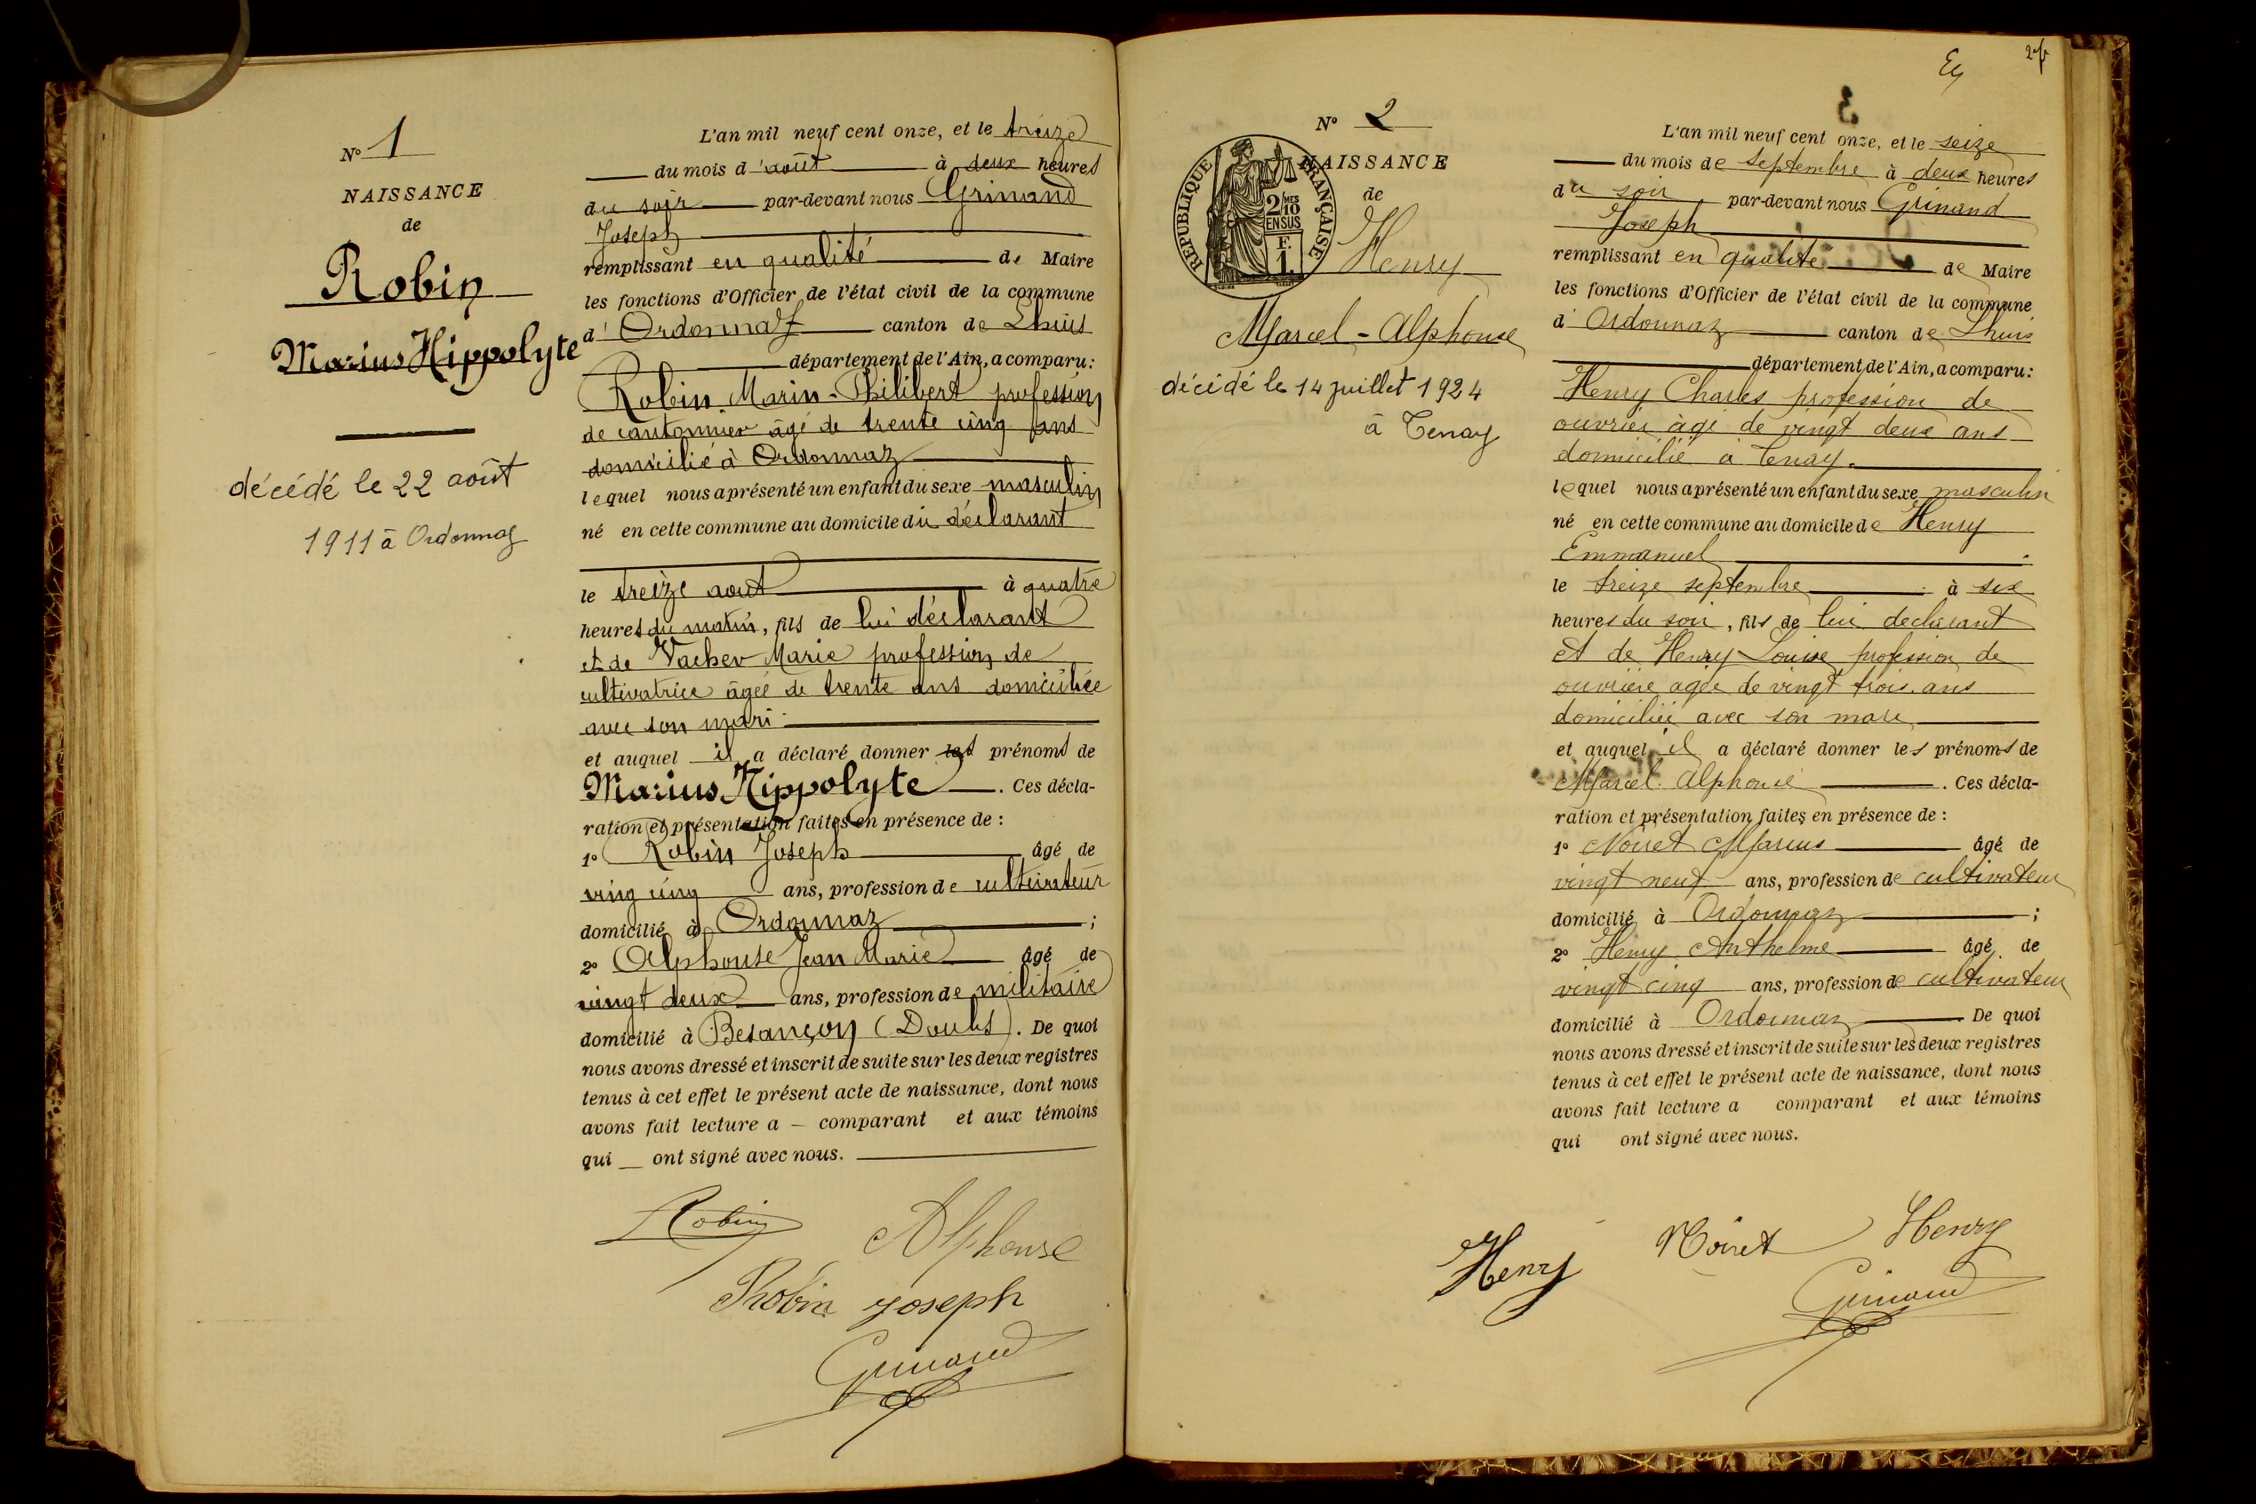 N° 1
NAISSANCE
de
Robin
Marius Hippolyte
décédé le 22 août
1911 à Ordonnaz
L'an mil neuf cent onze, et le treize
du mois d'août à deux heures
du soir par-devant nous Grinand
Joseph
remplissant en qualité de Maire
les fonctions d'Officier de l'état civil de la commune
d'Ordonnaz canton de Lhuis
département de l'Ain, a comparu:
Robin Marin-Philibert profession
de cantonnier âgé de trente cinq ans
domicilié à Ordonnaz
lequel nous a présenté un enfant du sexe masculin
né en cette commune au domicile du déclarant
le treize aout à quatre
heures du matin, fils de lui déclarant
et de Vacher Marie profession de
cultivatrice âgée de trente ans domiciliée
avec son mari
et auquel il a déclaré donner les prénoms de
Marius Hippolyte. Ces décla-
ration et présentation faites en présence de :
1° Robin Joseph âgé de
ving cinq ans, profession de cultivateur
domicilié à Ordonnaz ;
2° Alphonse Jean Marie âgé de
vingt deux ans, profession de militaire
domicilié à Besançon (Doubs). De quoi
nous avons dressé et inscrit de suite sur les deux registres
tenus à cet effet le présent acte de naissance, dont nous
avons fait lecture a – comparant et aux témoins
qui ont signé avec nous.
Robin
Alphonse
Robin Joseph
Grinand
N° 2
NAISSANCE
de
RÉPUBLIQUE FRANÇAISE
2/10 MES
EN SUS
F.
1.
Henry
Marcel-Alphonse
décédé le 14 juillet 1924
à Tenay
L'an mil neuf cent onze, et le seize
du mois de septembre à deux heures
du soir par-devant nous Grinand
Joseph
remplissant en qualité de Maire
les fonctions d'Officier de l'état civil de la commune
d'Ordonnaz canton de Lhuis
département de l'Ain, a comparu:
Henry Charles profession de
ouvrier âgé de vingt deux ans
domicilié à Tenay.
lequel nous a présenté un enfant du sexe masculin
né en cette commune au domicile de Henry
Emmanuel
le treize septembre à six
heures du soir, fils de lui declarant
et de Henry Louise profession de
ouvrière agée de vingt trois ans
domiciliée avec son mari
et auquel il a déclaré donner les prénoms de
Marcel Alphonse. Ces décla-
ration et présentation faites en présence de :
1° Noiret Marius âgé de
vingt neuf ans, profession de cultivateur
domicilié à Ordonnaz ;
2° Henry Anthelme âgé de
vingt cinq ans, profession de cultivateur
domicilié à Ordonnaz De quoi
nous avons dressé et inscrit de suite sur les deux registres
tenus à cet effet le présent acte de naissance, dont nous
avons fait lecture a comparant et aux témoins
qui ont signé avec nous.
Henry Noiret Henry
Grinand